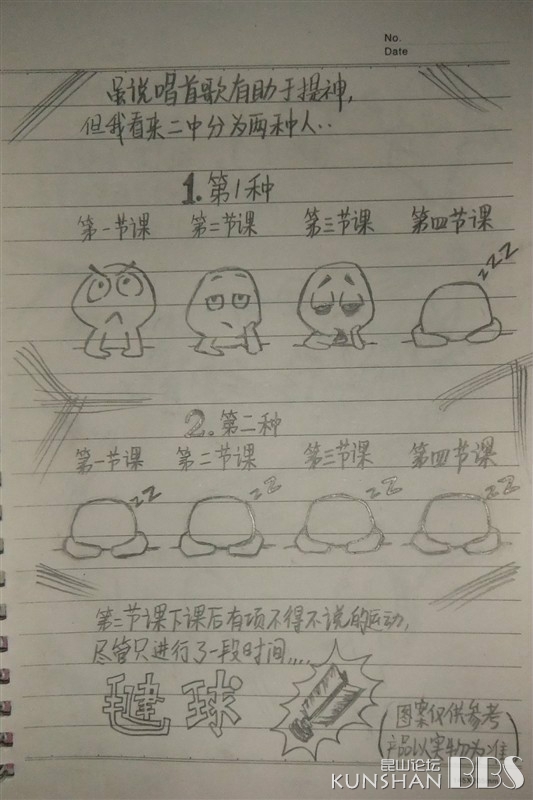 No.
Date
虽说唱首歌有助于提神,
但我看来二中分为两种人..
1.第1种
第一节课 第二节课 第三节课 第四节课
zZZ
2.第二种
第一节课 第二节课 第三节课 第四节课
zZ zZ zZ zZ
第二节课下课后有项不得不说的运动,
尽管只进行了一段时间....
毽球
(图案仅供参考
产品以实物为准)
昆山论坛
KUNSHAN BBS